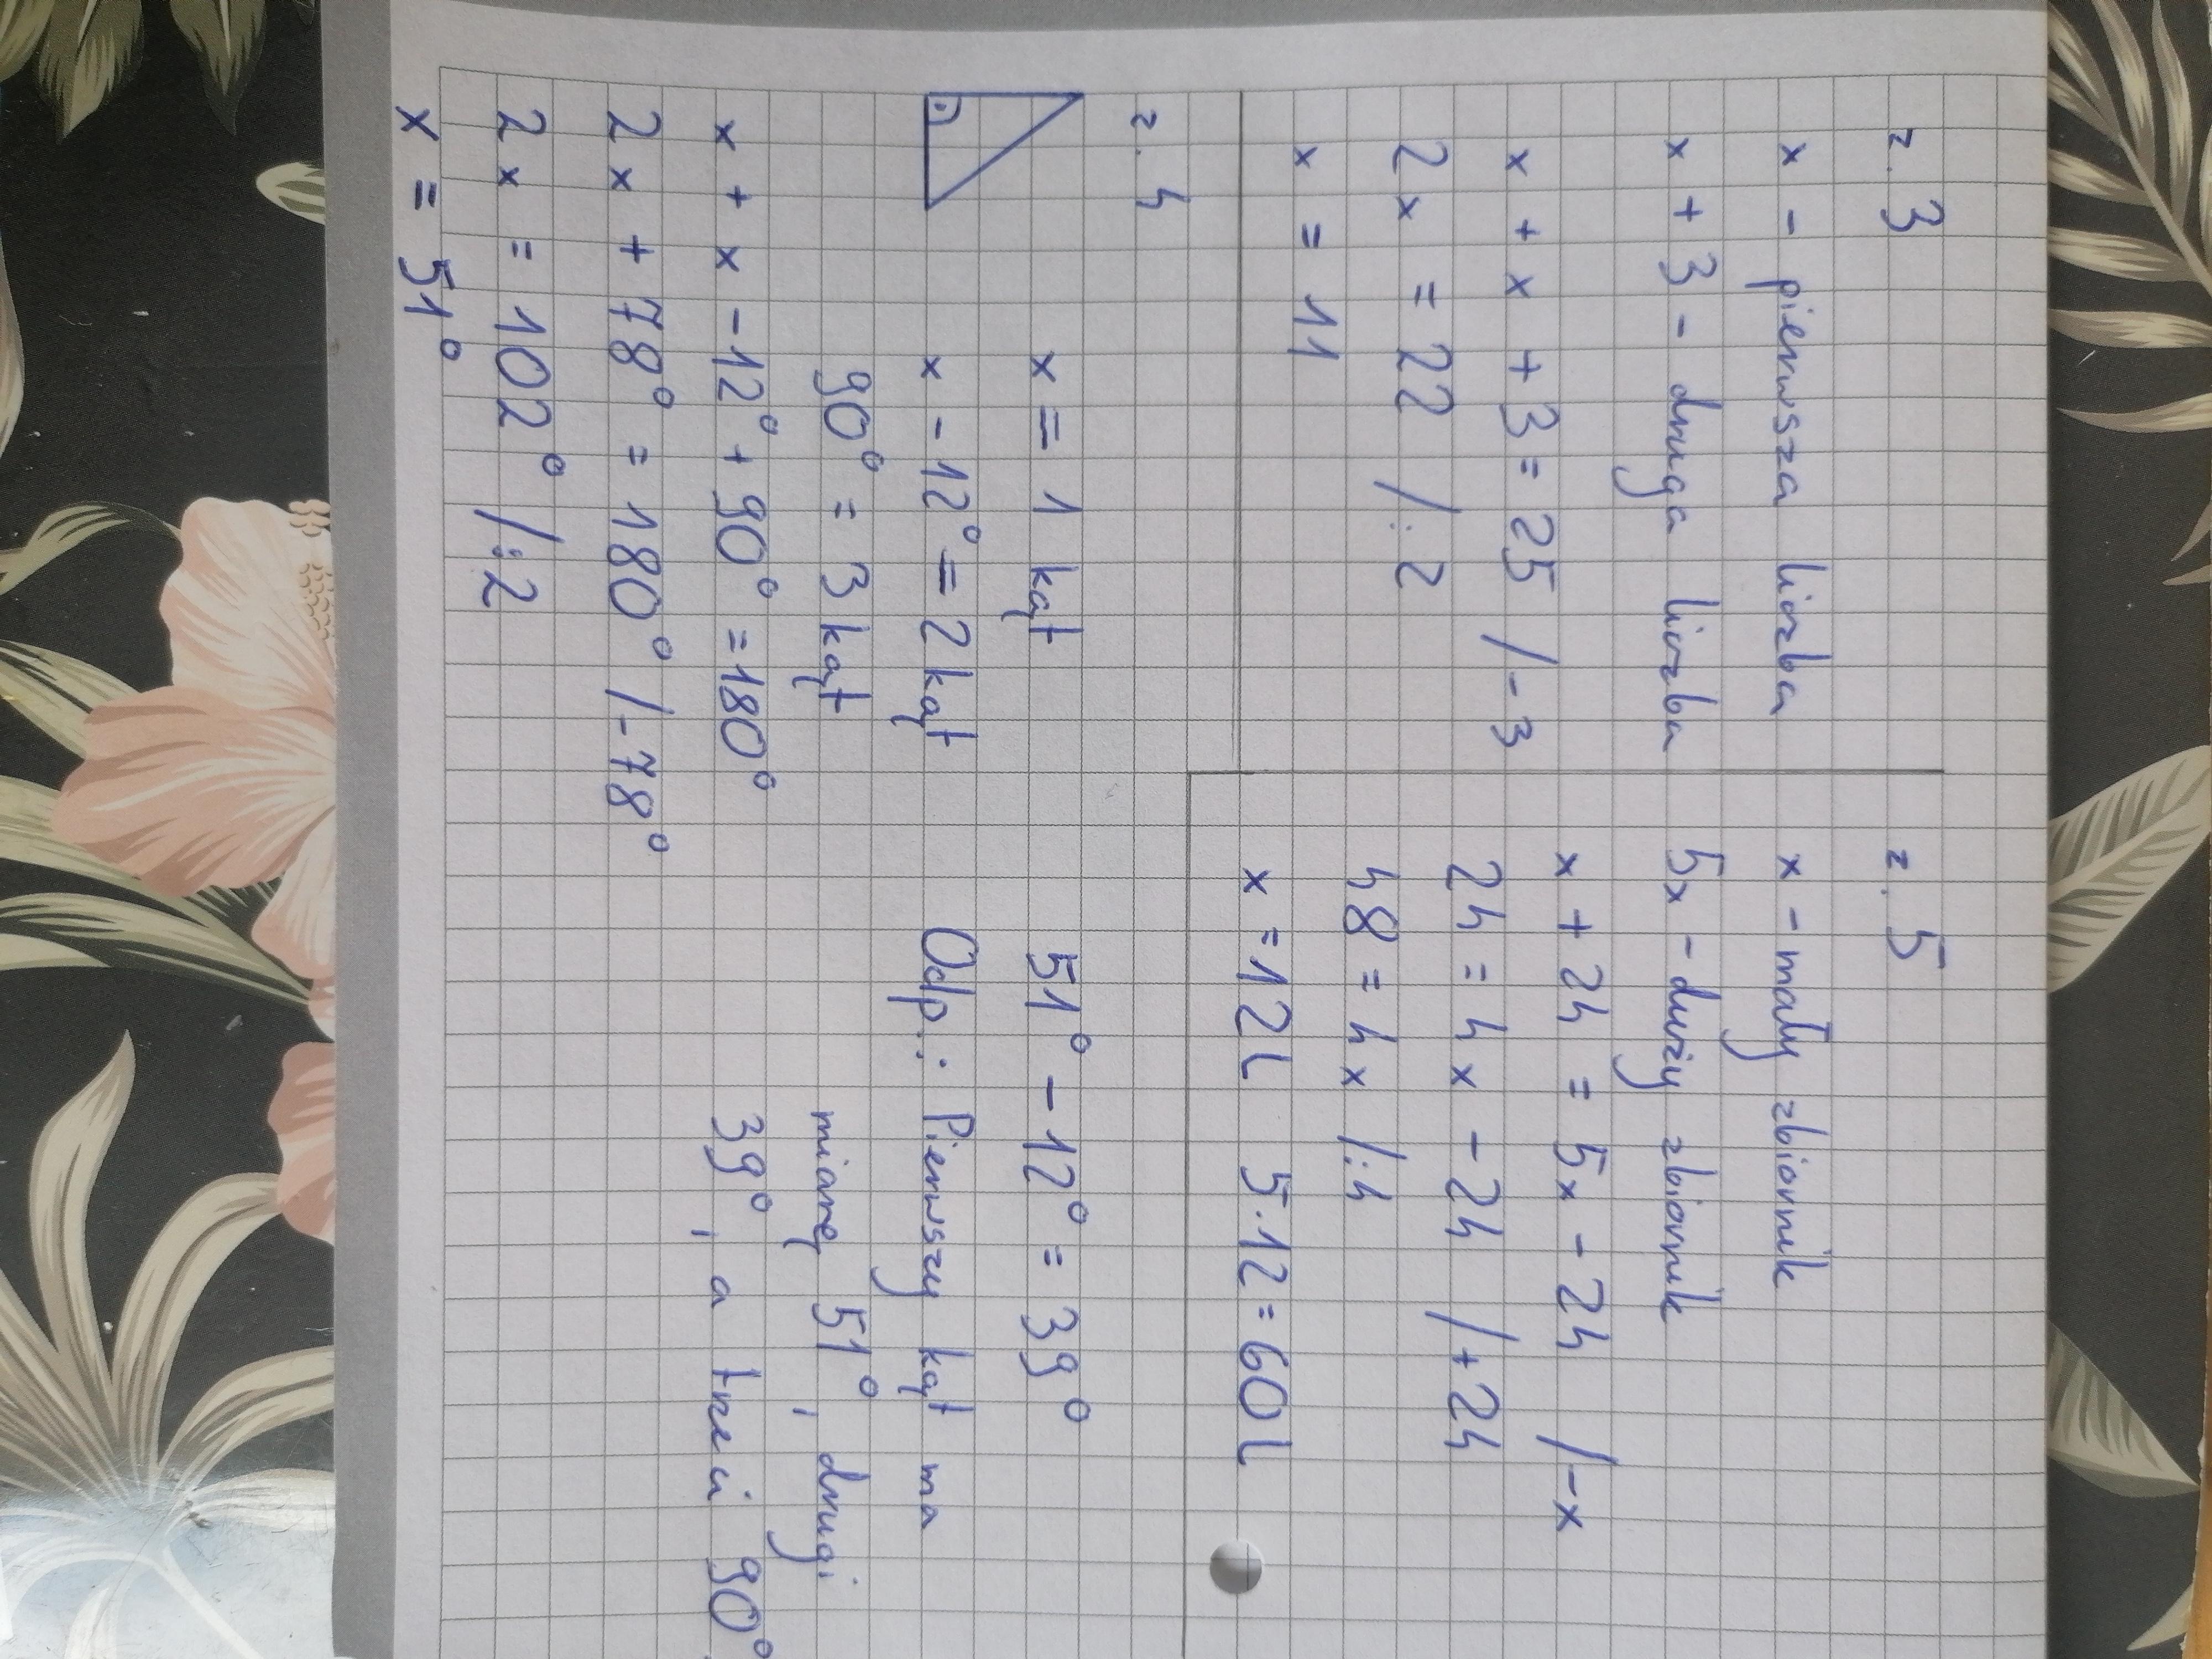 z. 3
x - pierwsza liczba
x + 3 - druga liczba
x + x + 3 = 25 /-3
2x = 22 /:2
x = 11
z. 5
x - mały zbiornik
5x - duży zbiornik
x + 24 = 5x - 24 /-x
24 = 4x - 24 /+24
48 = 4x /:4
x = 12 l 5·12 = 60 l
z. 4
x = 1 kąt
x - 12° = 2 kąt
90° = 3 kąt
x + x - 12° + 90° = 180°
2x + 78° = 180° /-78°
2x = 102° /:2
x = 51°
51° - 12° = 39°
Odp.: Pierwszy kąt ma
miarę 51°, drugi
39°, a trzeci 90°